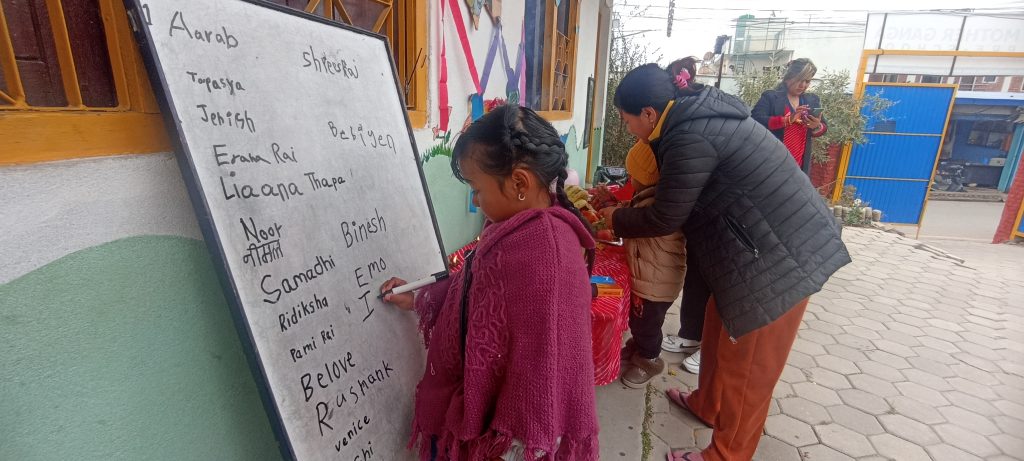 Aarab
shreusRaj
Tapasya
Jenish
Bebiyen
Eraha Rai
Liaana Thapa
Noor
Binesh
Samadhi
Emo
Ridiksha
I
Pami Rai
Belove
Rushank
venice
MOTHER GANGA